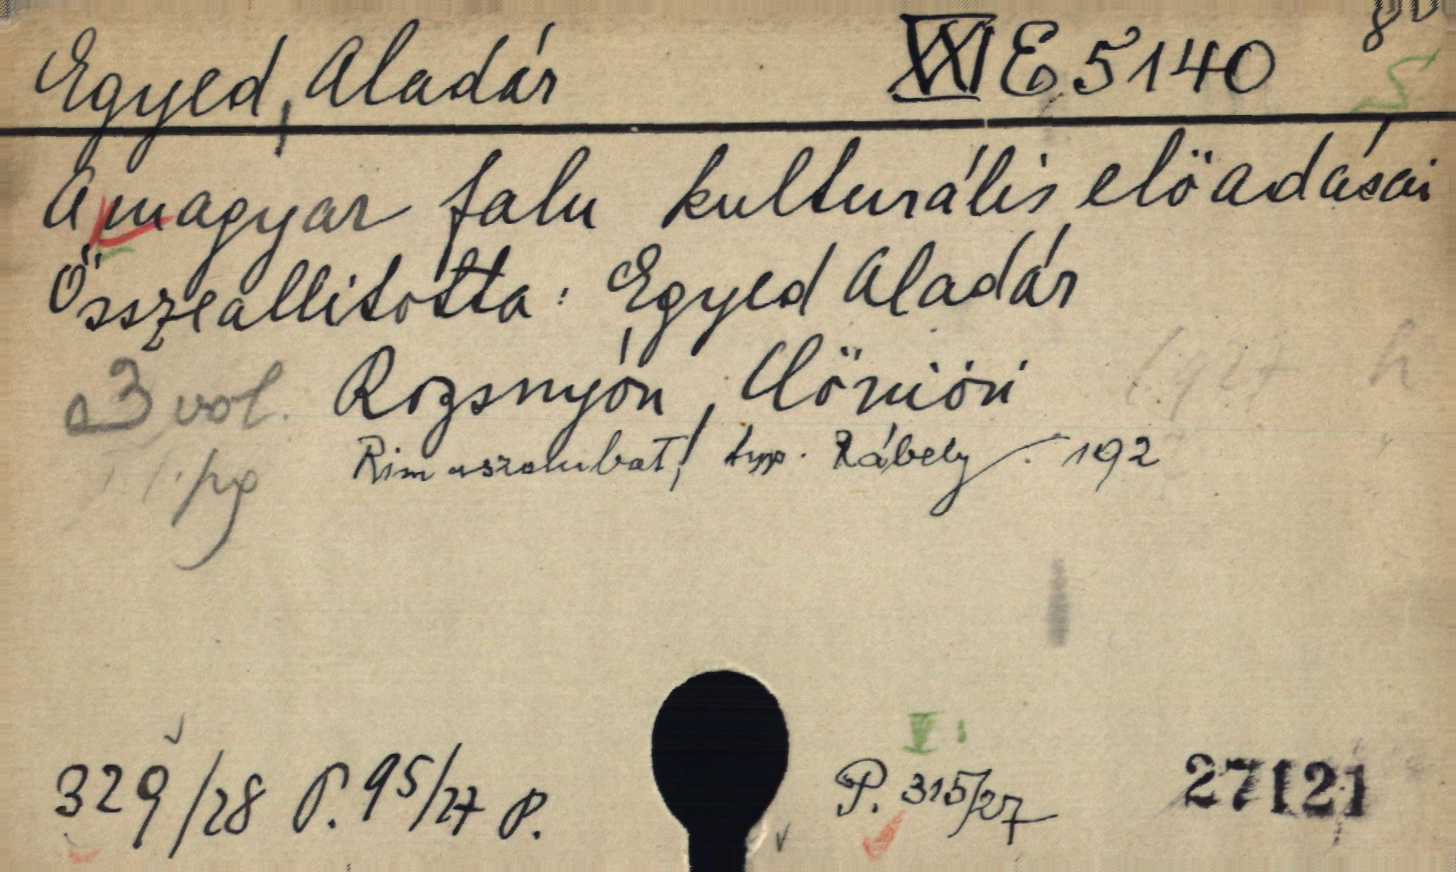 Egyed, Aladár XXI E 5140
A magyar falu kulturális előadásai
Összeallitotta: Egyed Aladár
3 vol. Rozsnyón,
Rimaszombat, typ. Rábely. 192
329/28 P. 95/27 P. P. 315/27 27121